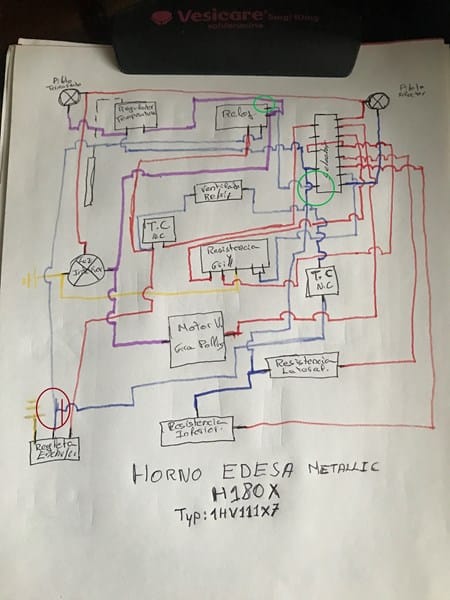 Vesicare® 5mg/10mg
solifenacina
Piloto
Termostato
Regulador
Temperatura
Reloj
Piloto
Selector
Selector
Ventilador
Refrig
T.C
N.C
Resistencia
Grill
Luz
Interior
T.C
N.C
Motor V.
Gira Pollos
Resistencia
Lateral.
Resistencia
Inferior.
Regleta
Enchufe
HORNO EDESA METALLIC
H180X
Typ:1HV111X7